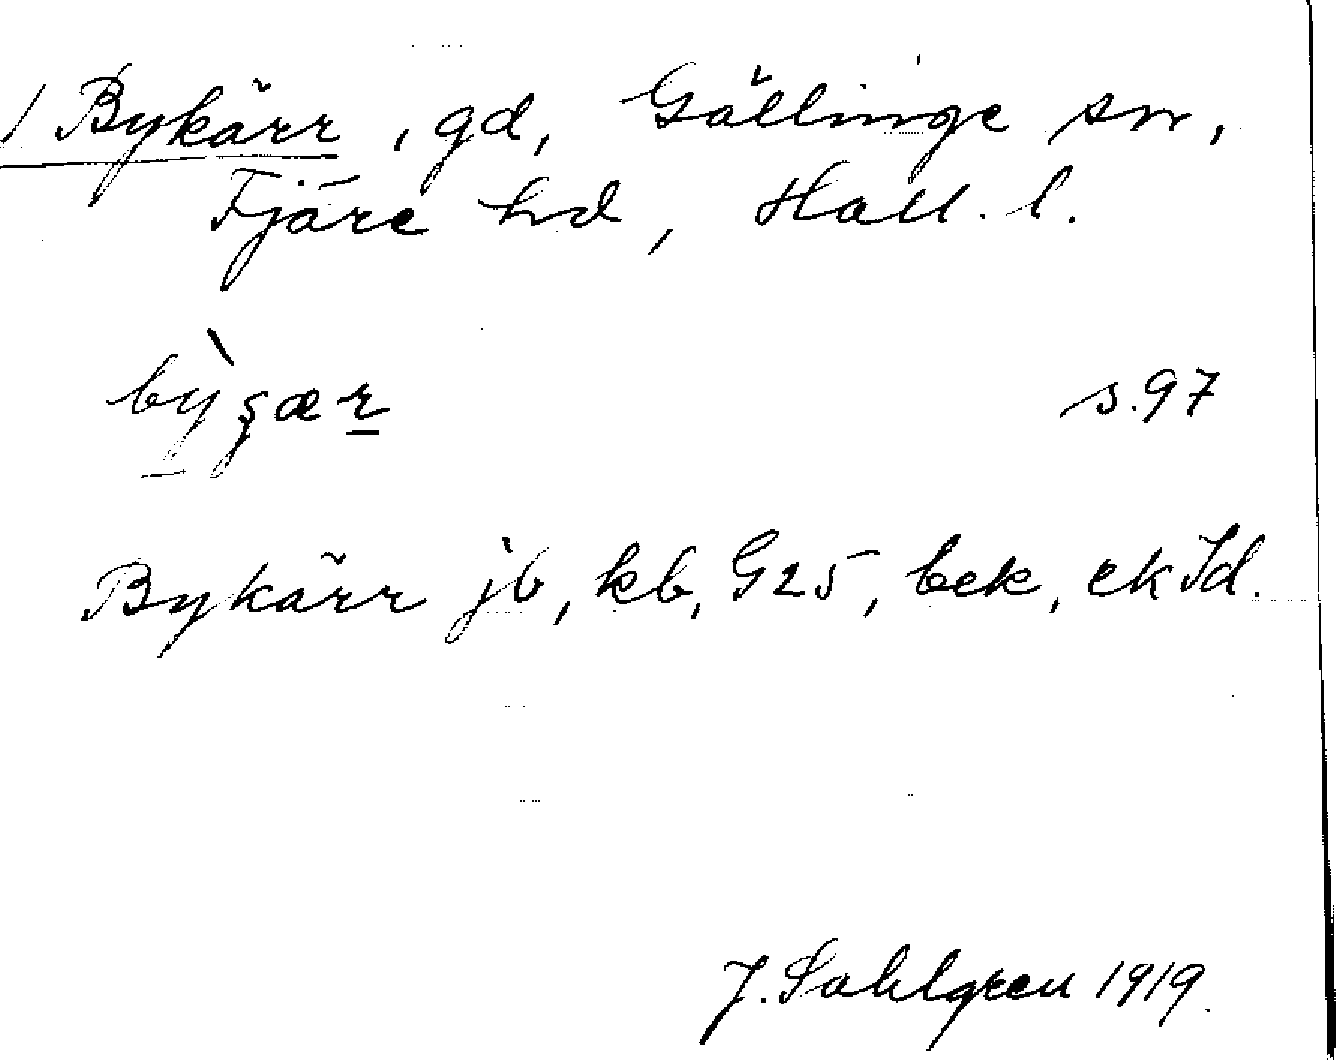 / Bykärr, gd, Gällinge sn,
Fjäre hd, Hall. l.
bỳʂær s. 97
Bykärr jb, kb, G25, bek, ek Id.
J. Sahlgren 1919.